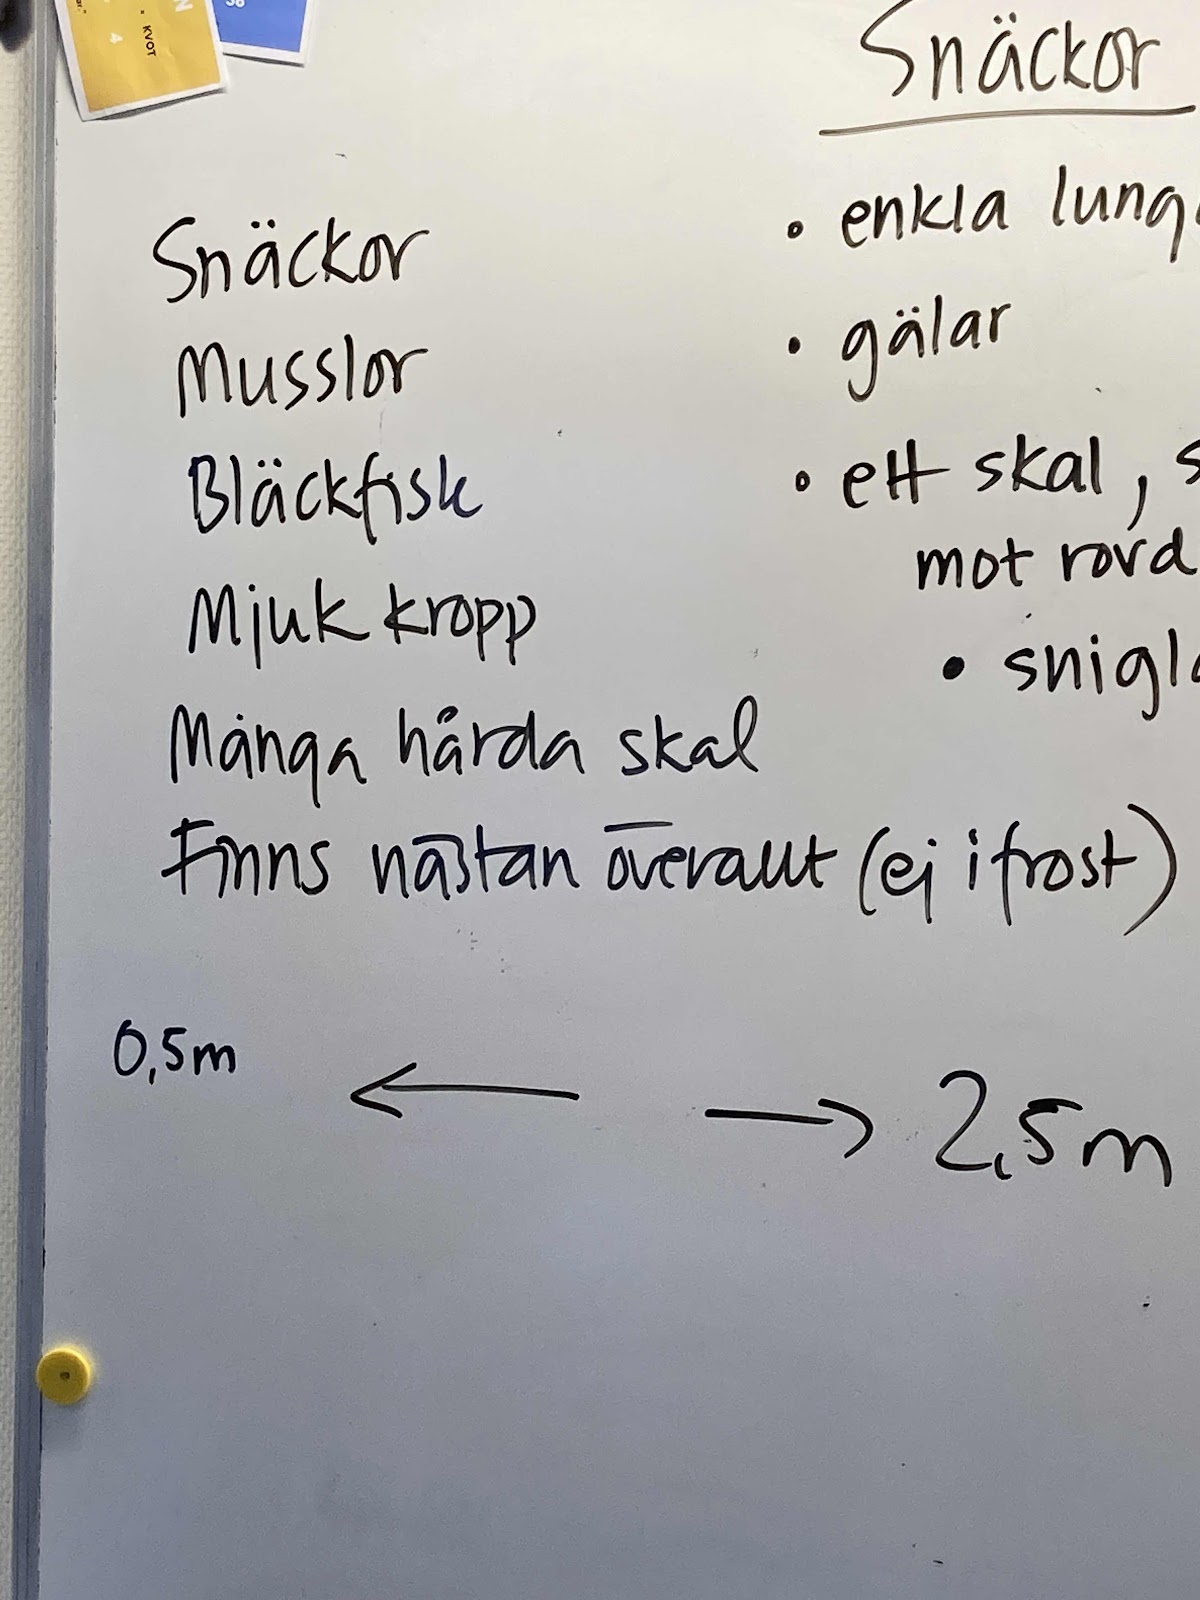 KVOT
4
Snäckor
Snäckor
Musslor
Bläckfisk
Mjuk kropp
Många hårda skal
Finns nästan överallt (ej i frost)
0,5m ← → 2,5m
• enkla lung
• gälar
• ett skal, s
mot rovd
• snigl